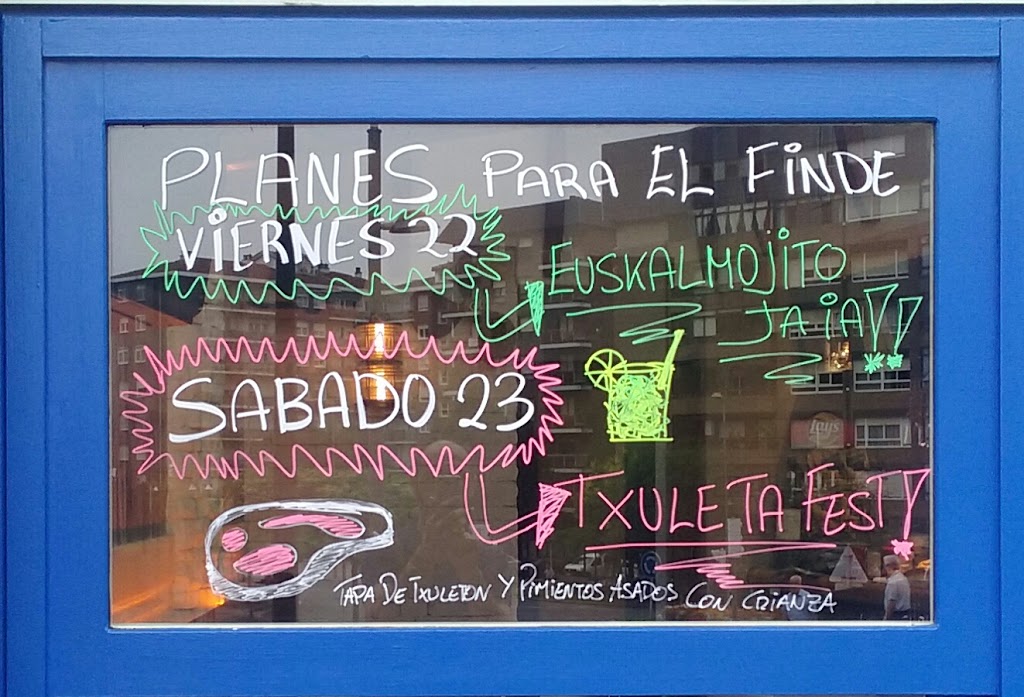 PLANES PARA EL FINDE
VIERNES 22
EUSKALMOJITO
JAIA!!
SABADO 23
Lay's
TXULETA FEST!
TAPA DE TXULETON Y PIMIENTOS ASADOS CON CRIANZA